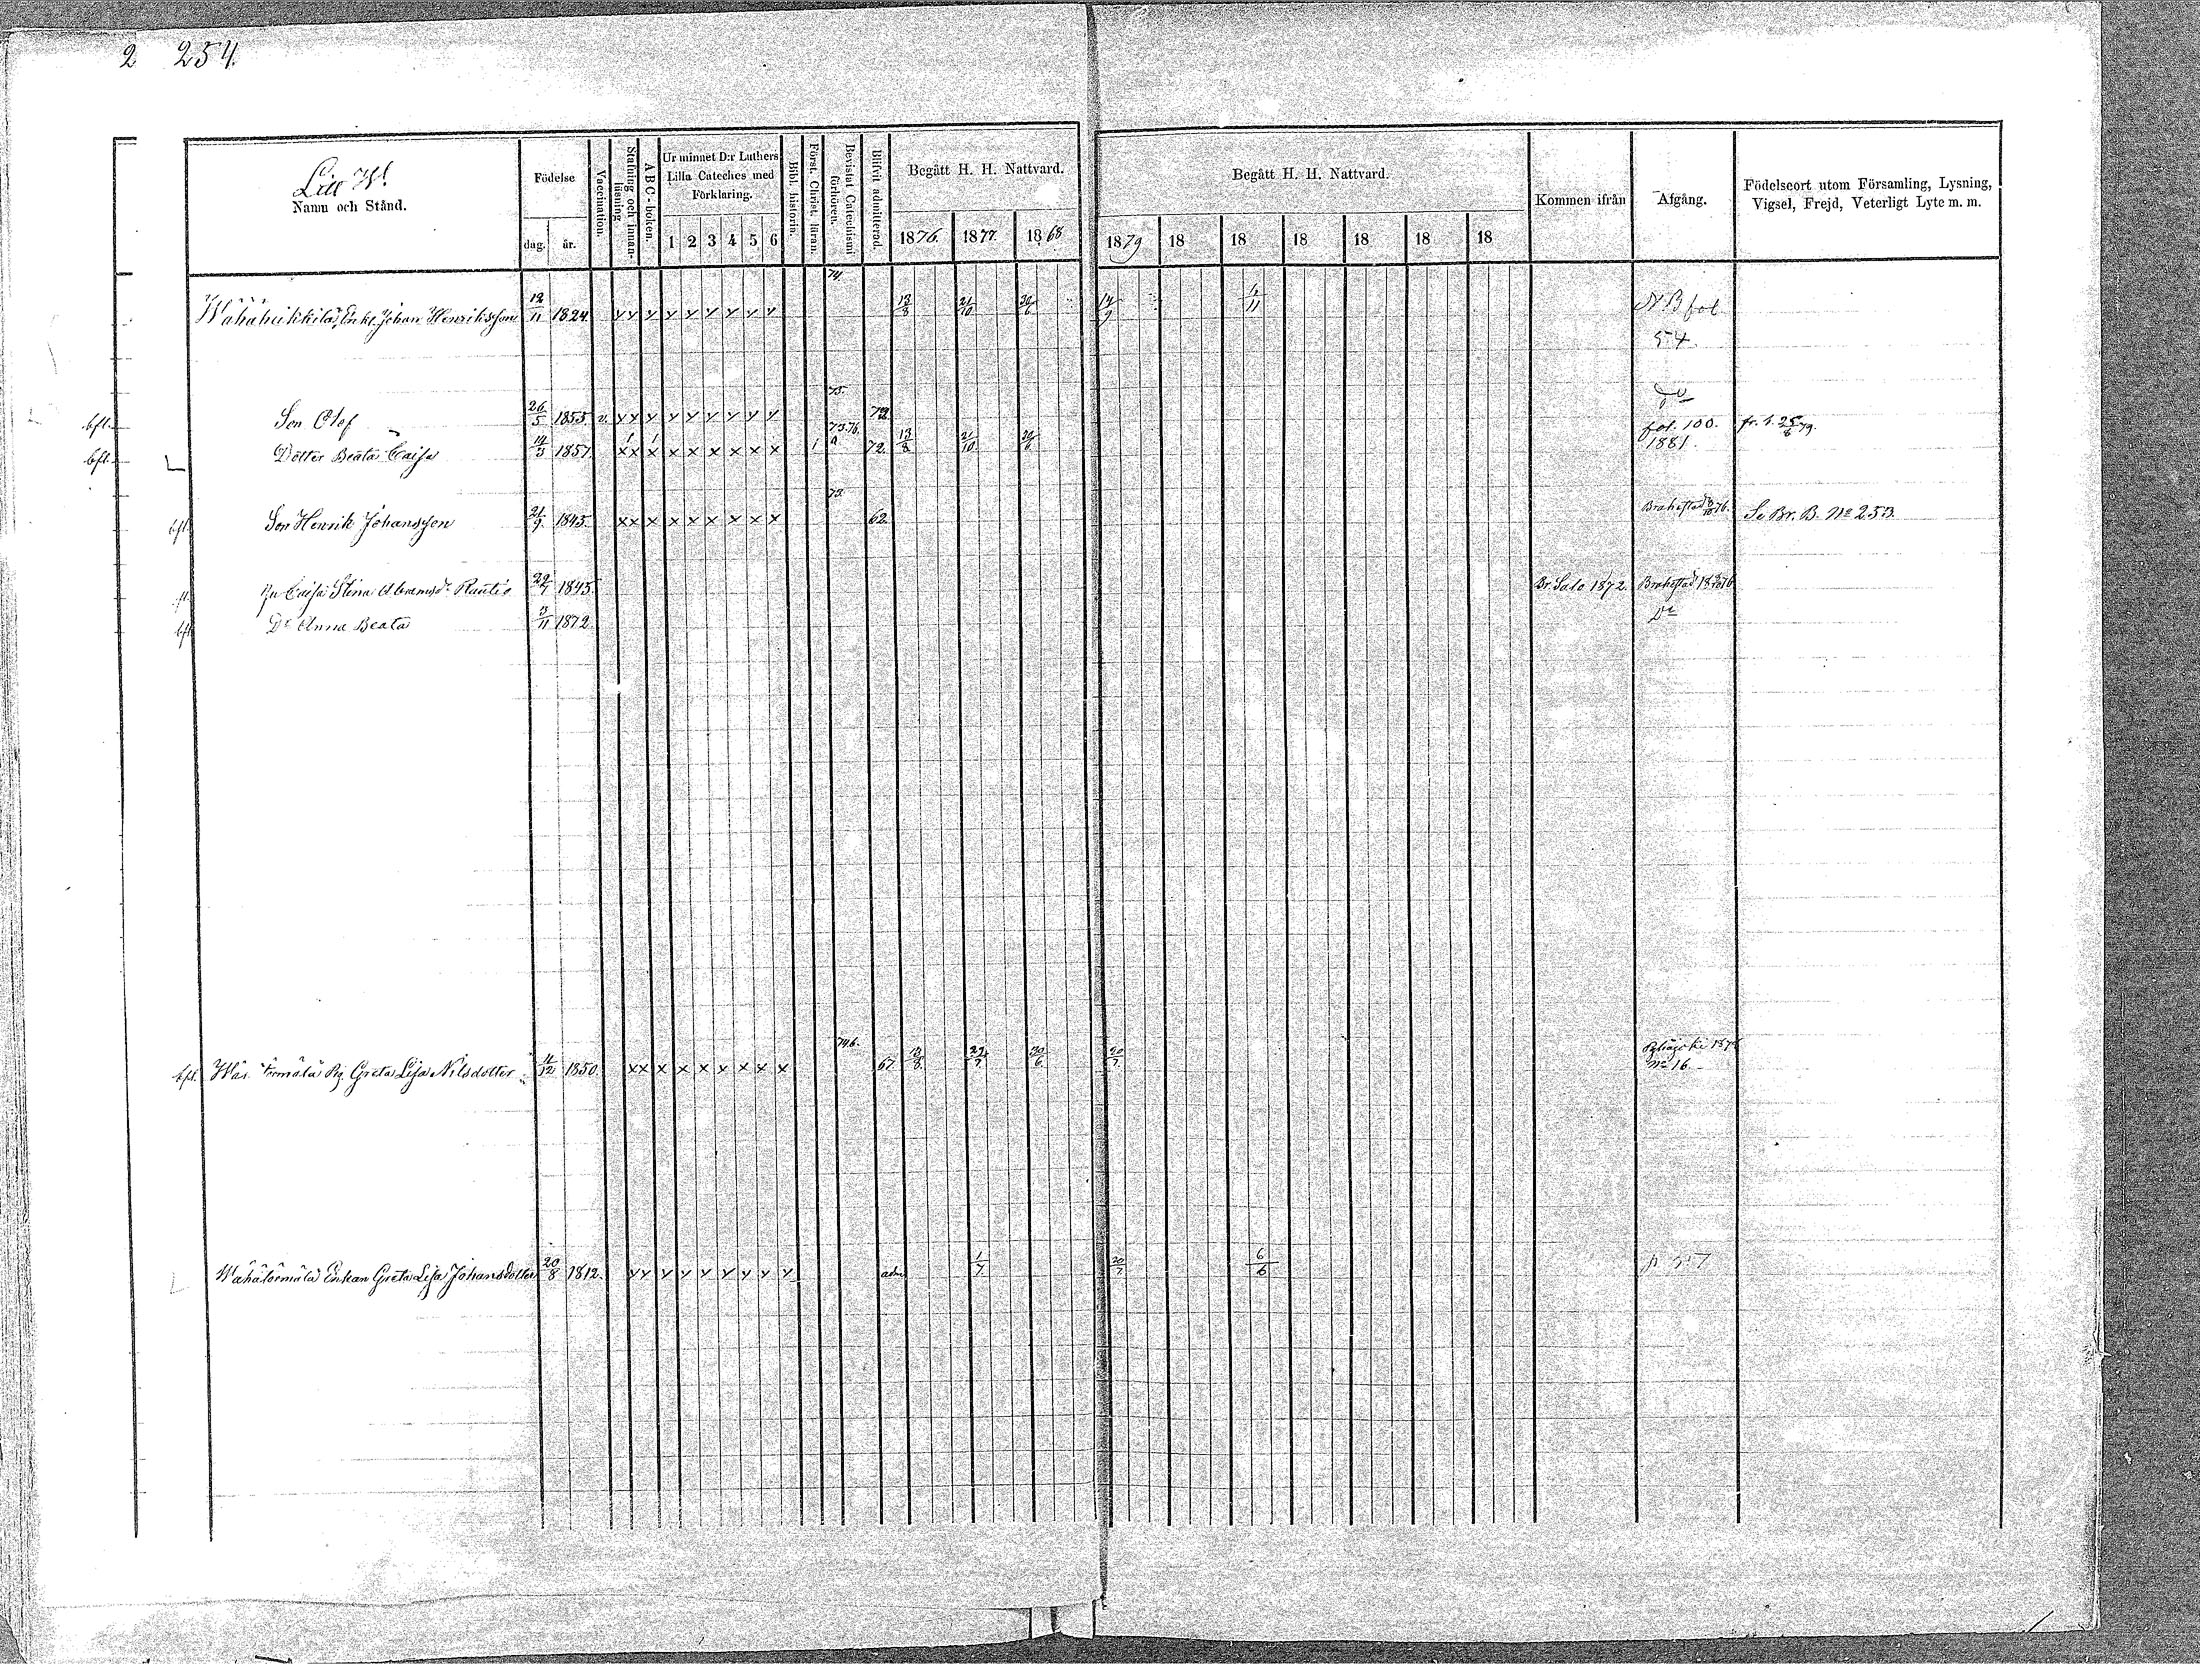 2 254.
Litt W.
Namn och Stånd.
Födelse
dag. år.
Vaccination.
Stafning och innanläsning.
ABC-boken.
Ur minnet D:r Luthers Lilla Cateches med Förklaring.
1 2 3 4 5 6
Bibl. historin.
Först. Christ. läran.
Bevistat Catechismi förhören.
Blifvit admitterad.
Begått H. H. Nattvard.
1876. 1877. 1868
Begått H. H. Nattvard.
1879 18 18 18 18 18 18
Kommen ifrån
Afgång.
Födelseort utom Församling, Lysning, Vigsel, Frejd, Veterligt Lyte m. m.
74.
Wähäheikkilä, Enkl. Johan Henriksson 12/11 1824 y y y y y y y y y 13/8 21/10 30/6 14/9 4/11 NB fol
54.
75.
bfl. Son Olof 26/5 1855 v. y x y y y y y y y 72 fol. 100. fr. b. 25/6 79.
73.76.
bfl. Dotter Beata Caisa 14/3 1857. x x x x x x x x x 1 72. 13/8 21/10 30/6 1881.
73.
bfl. Son Henrik Johansson 21/9. 1845. x x x x x x x x x 62. Brahestad 76. Se Br. B. No 253.
Caisa Stina Abramsdr Rautio 22/7 1845. Br. Salo 1872. Brahestad
bfl. Dr Anna Beata 3/11 1872. Do
746.
bfl. Greta Lisa Nilsdotter 11/12 1850. x x x x x x x x x 67. 13/8. 22/7 30/6. 20/7. No 16
Wähätörmälä Enkan Greta Lisa Johansdotter 20/8 1812. y y y y y y y y y adm 1/7. 20/7 6/6